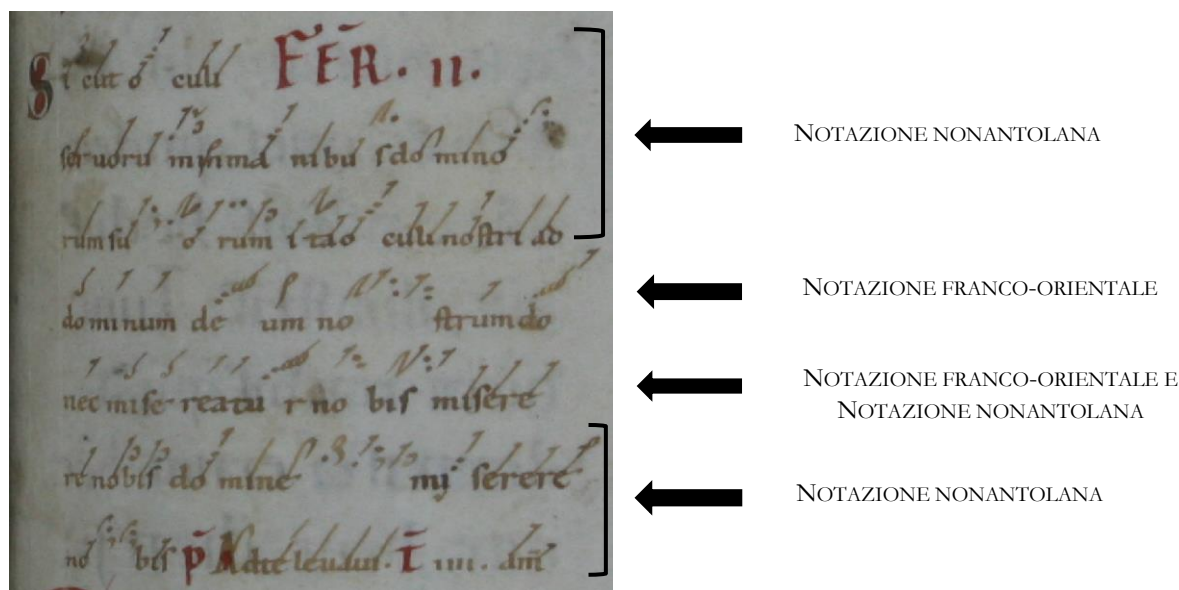 Si cut o culi FER. II.
seruoru inma nibu sdo mino
rum su o rum i tao culi nostri ad
dominum de um no strum do
nec mise reatu r no bis misere
re nobis do mine mi serere
no bis p̄ Adte leuaui. T̄ IIII.
NOTAZIONE NONANTOLANA
NOTAZIONE FRANCO-ORIENTALE
NOTAZIONE FRANCO-ORIENTALE E
NOTAZIONE NONANTOLANA
NOTAZIONE NONANTOLANA